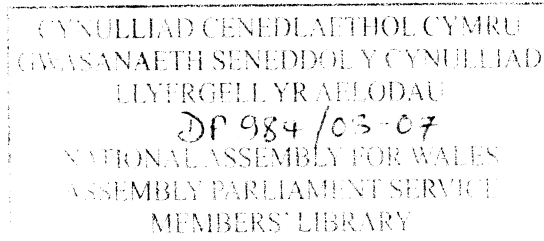 CYNULLIAD CENEDLAETHOL CYMRU
GWASANAETH SENEDDOL Y CYNULLIAD
LLYFRGELL YR AELODAU
DP 984/03-07
NATIONAL ASSEMBLY FOR WALES
ASSEMBLY PARLIAMENT SERVICE
MEMBERS' LIBRARY